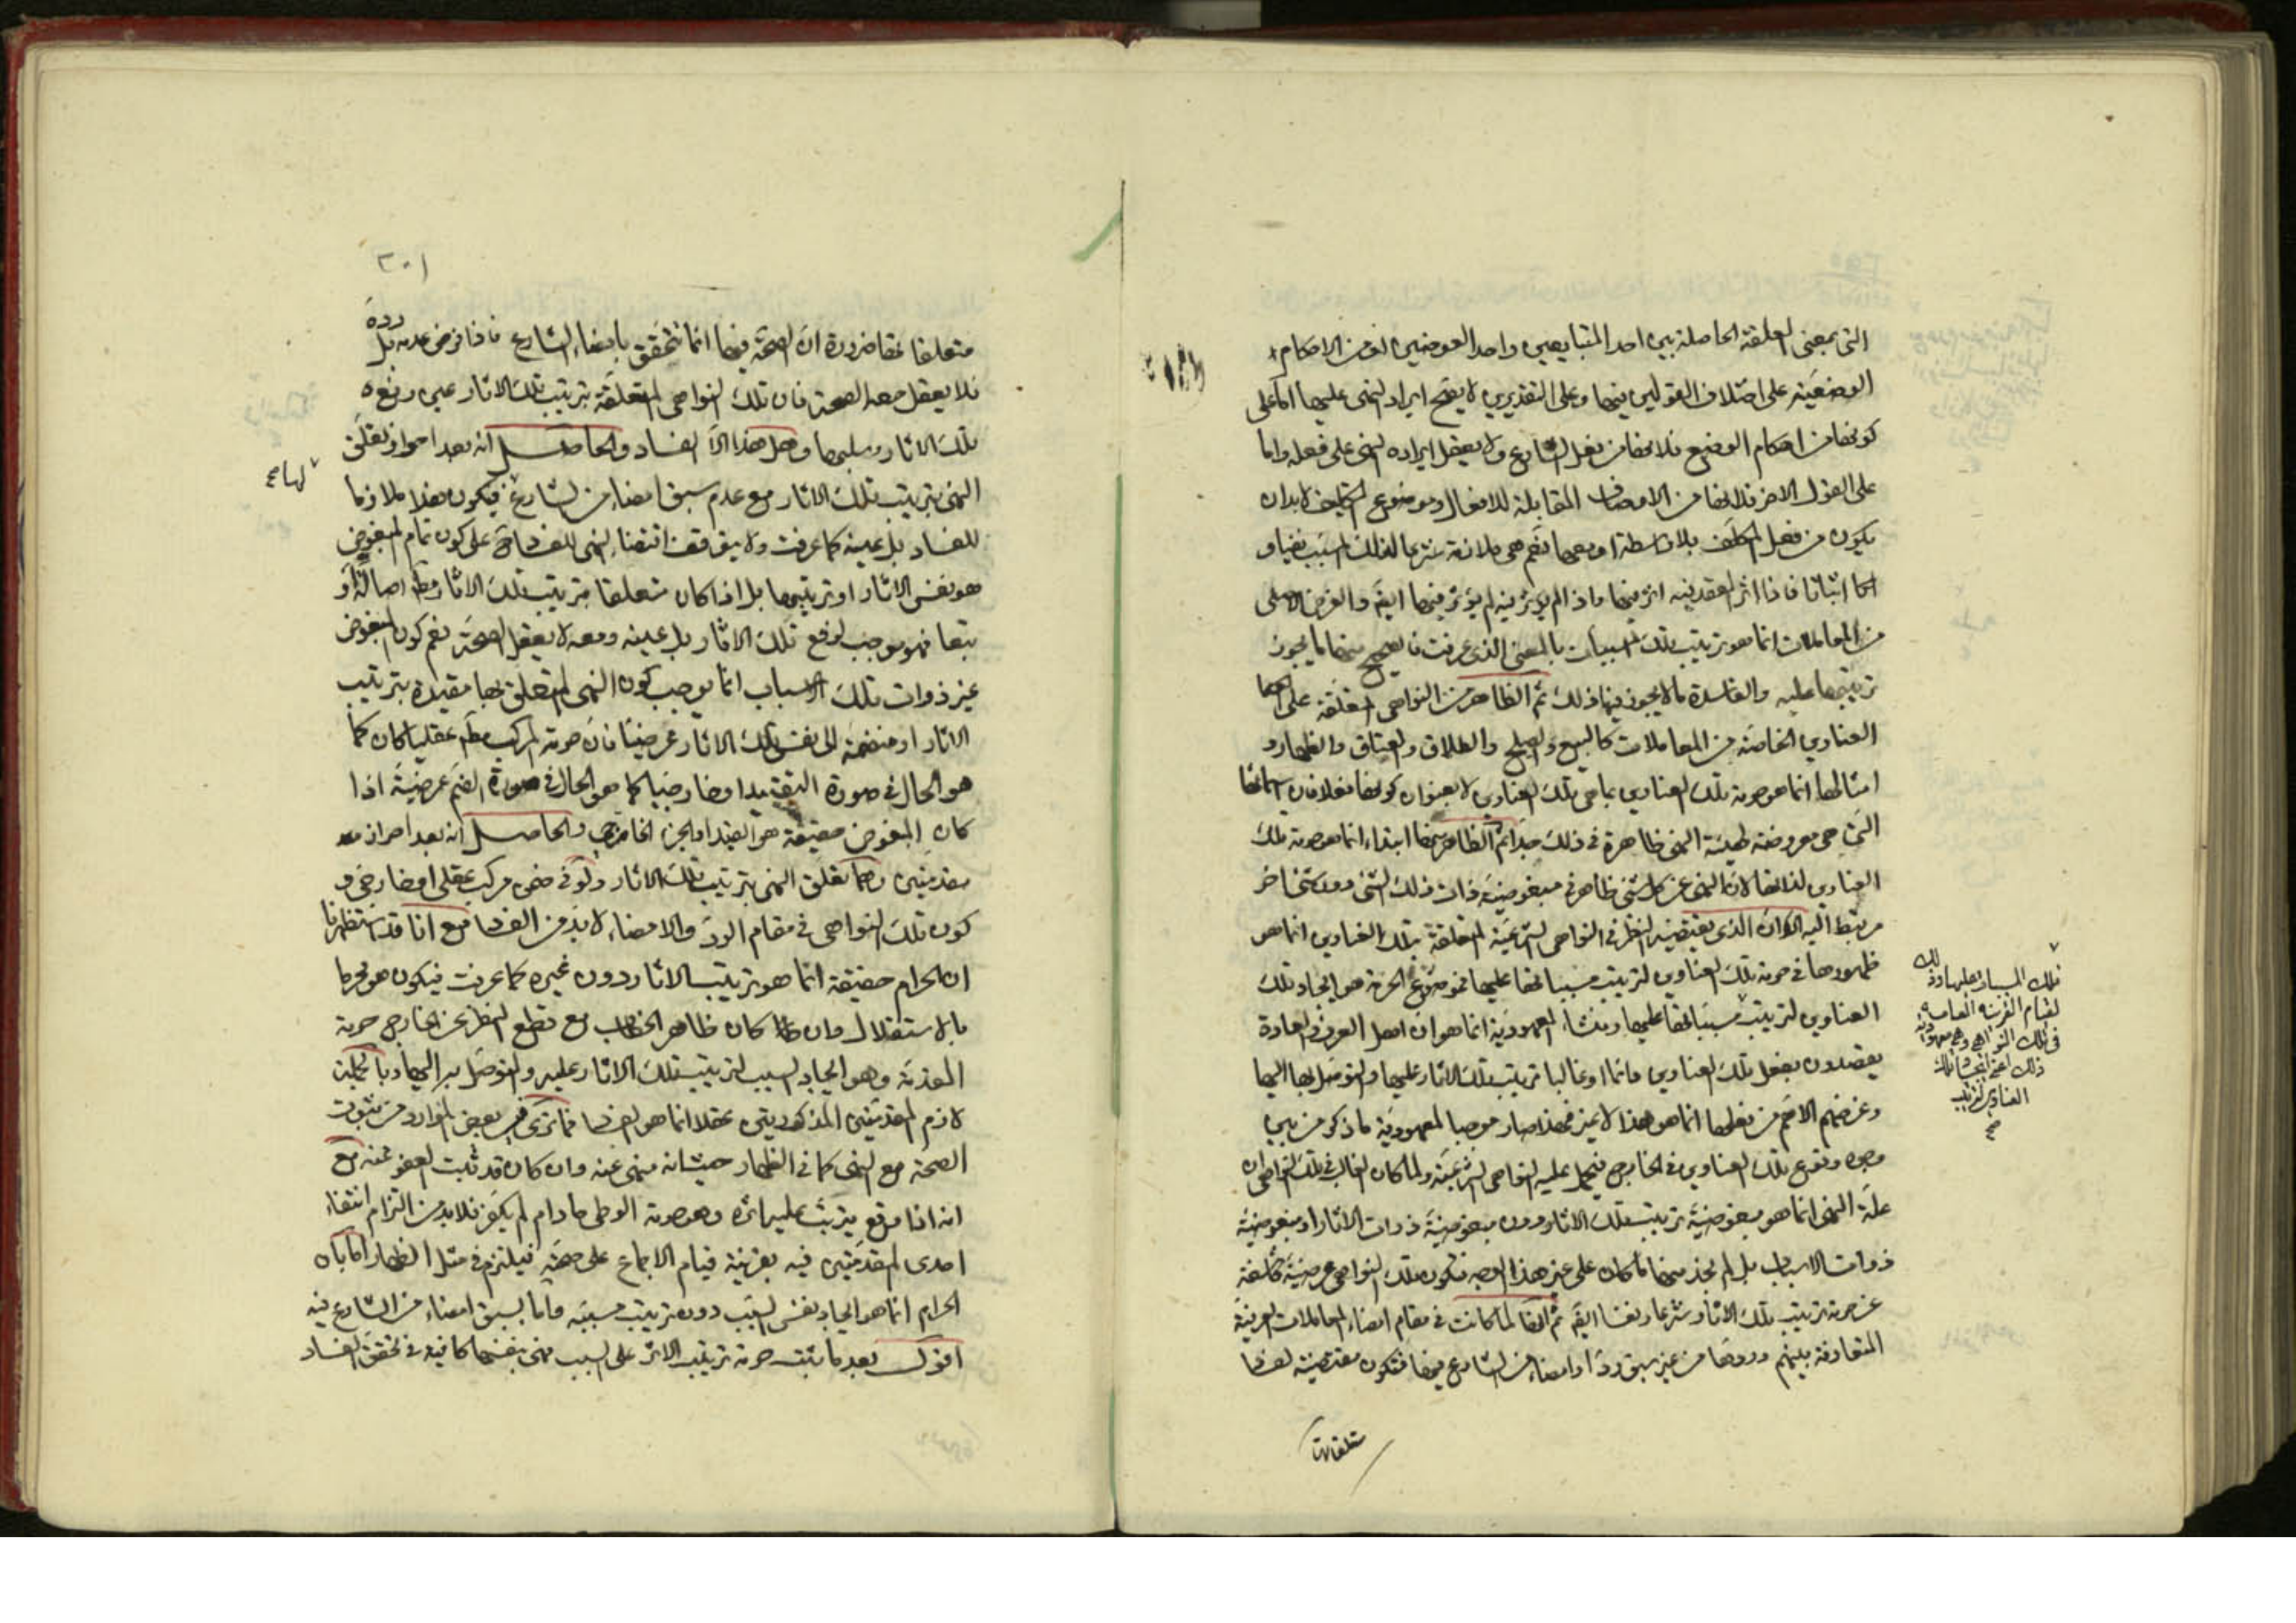 التى بمعنى العلقة الحاصلة بين احد المتبايعين واحد العوضين من الاحكام
الوضعية على اختلاف القولين فيها وعلى التقديرين لا يصح ايراد النهى عليها اما على
كونها من احكام الوضع فلانها من فعل الشارع ولا يعقل ايراده النهى على فعله واما
على القول الاخر فلانها من الاوصاف المقابلة للافعال وموضوع التكليف لا بد ان
يكون من فعل المكلف بلا واسطة او معها نعم هى ملازمة شرعا لذلك المسبب نفيا و
اثباتا فاذا اثر العقد فيه اثر فيها واذا لم يؤثر فيه لم يؤثر فيها ايضا والغرض الاصلى
من المعاملات انما هو ترتيب تلك المسببات بالمعنى الذى عرفت فالصحيح منها ما يجوز
ترتيبها عليه والفاسدة ما لا يجوز فيها ذلك ثم الظاهر من النواهى المتعلقة على
العناوين الخاصة من المعاملات كالبيع والصلح والطلاق والعتاق والظهار و
امثالها انما هو حرمة تلك العناوين بما هى تلك العناوين لا بعنوان كونها فعلا فان اسمائها
التى هى معروضة لهيئة النهى ظاهرة فى ذلك جدا ثم الظاهر منها ابتداء انما هو حرمة تلك
العناوين لذاتها لان النهى عن كل شئ ظاهر فى مبغوضية ذات ذلك الشئ دون شئ اخر
مرتبط اليه الا ان الذى يقتضيه النظر فى النواهى الشرعية المتعلقة بتلك العناوين انما هو
ظهورها فى حرمة تلك العناوين لترتيب مسبباتها عليها فموضوع الحرمة هو ايجاد تلك
العناوين لترتيب مسبباتها عليها ومنشاء المعهودية انما هو ان اهل العرف والعادة
يقصدون بفعل تلك العناوين دائما او غالبا ترتيب تلك الاثار عليها والتوصل بها اليها
وغرضهم الاهم من فعلها انما هو هذا لا غير فهذا صار موجبا لمعهودية ما ذكر من بين
وجوه وقوع تلك العناوين فى الخارج فيحمل عليه النواهى الشرعية ولما كان الغالب فى تلك النواهى ان
علة النهى انما هو مبغوضية ترتيب تلك الاثار دون مبغوضية ذوات الاثار او مبغوضية
ذوات الاسباب بل لم نجد منها ما كان على غير هذا الوجه فتكون تلك النواهى عرضية كاشفة
عن حرمة ترتيب تلك الاثار شرعا ونفسا ايضا ثم انها لما كانت فى مقام امضاء المعاملات العرفية
المتعارفة بينهم وردها من غير سبق رد او امضاء من الشارع فيها فتكون مقتضية لفساد
متعلقاتها
تلك المسببات عليها وذلك
لقيام القرينة العامة
فى تلك النواهى وهى معهودية
ذلك اعنى ايجاد تلك
العناوين لترتيب
صح
٣٠١
متعلقاتها ضرورة ان الصحة فيها انما تتحقق بامضاء الشارع فاذا فرض عدمه بل رده
فلا يعقل معه الصحة فان تلك النواهى المتعلقة بترتيب تلك الاثار عين رفعه
تلك الاثار وسلبها وهل هذا الا الفساد والحاصل انه بعد احراز تعلق
النهى بترتيب تلك الاثار مع عدم سبق امضاء من الشارع فيكون هذا ملازما
لها صح
للفساد بل عينه كما عرفت ولا يتوقف اقتضاء النهى للفساد على كون تمام المبغوض
هو نفس الاثار او ترتيبها بل اذا كان متعلقا بترتيب تلك الاثار مطلقا اصالة او
تبعا فهو موجب لرفع تلك الاثار بل عينه ومعه لا يعقل الصحة نعم كون المبغوض
غير ذوات تلك الاسباب انما يوجب كون النهى المتعلق بها مقيدة بترتيب
الاثار او منضمة الى نفس تلك الاثار عرضيا فان حرمة المركب مطلقا عقليا كان كما
هو الحال فى صورة التقييد او خارجيا كما هو الحال فى صورة الضم عرضية اذا
كان المبغوض حقيقة هو القيد او الجزء الخارجى والحاصل انه بعد احراز
مقدمتين وهما تعلق النهى بترتيب تلك الاثار ولو فى ضمن مركب عقلى او خارجى و
كون تلك النواهى فى مقام الرد والامضاء لا بد من الفساد مع انا قد استظهرنا
ان الحرام حقيقة انما هو ترتيب الاثار دون غيره كما عرفت فيكون هو محرما
بالاستقلال وان كان ظاهر الخطاب مع قطع النظر عن الخارج حرمة
المقدمة وهو ايجاد السبب لترتيب تلك الاثار عليه والتوصل به اليها وبالجملة
لازم المقدمتين المذكورتين عقلا انما هو الفساد فما ترى فى بعض الموارد من ثبوت
الصحة مع النهى كما فى الظهار حيث انه منهى عنه وان كان قد ثبت العفو عنه مع
انه اذا وقع يترتب عليه اثره وهو حرمة الوطى ما دام لم يكفر فلا بد من التزام انتفاء
احدى المقدمتين فيه بقرينة قيام الاجماع على صحته فيلتزم فى مثل الظهار اما بان
الحرام انما هو ايجاد نفس السبب دون ترتيب مسببه واما بسبق امضاء من الشارع فيه
اقول بعد ما ثبت حرمة ترتيب الاثر على السبب فهى بنفسها كافية فى تحقق الفساد